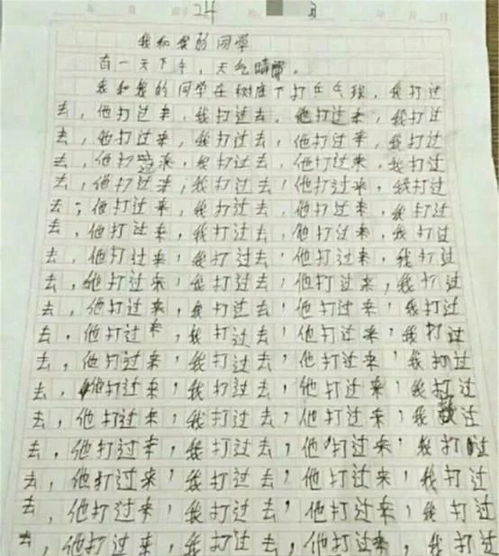 24
我和我的同学
有一天下午，天气晴朗。
我和我的同学在树底下打乒乓球，我打过
去，他打过来，我打过去，他打过来，我打过
去，他打过来，我打过去，他打过来，我打过
去，他打过来，我打过去，他打过来，我打过
去，他打过来，我打过去，他打过来，我打过
去，他打过来，我打过去，他打过来，我打过
去，他打过来，我打过去，他打过来，我打过
去，他打过来，我打过去，他打过来，我打过
去，他打过来，我打过去，他打过来，我打过
去，他打过来，我打过去，他打过来，我打过
去，他打过来，我打过去，他打过来，我打过
去，他打过来，我打过去，他打过来，我打过
去，他打过来，我打过去，他打过来，我打过
去，他打过来，我打过去，他打过来，我过
去，他打过来，我打过去，他打过来，我打过
去，他打过来，我打过去，他打过来，我打过
去，他打过来，我打过去，他打过来，我打过
去，他打过来，我打过去，他打过来，我打过